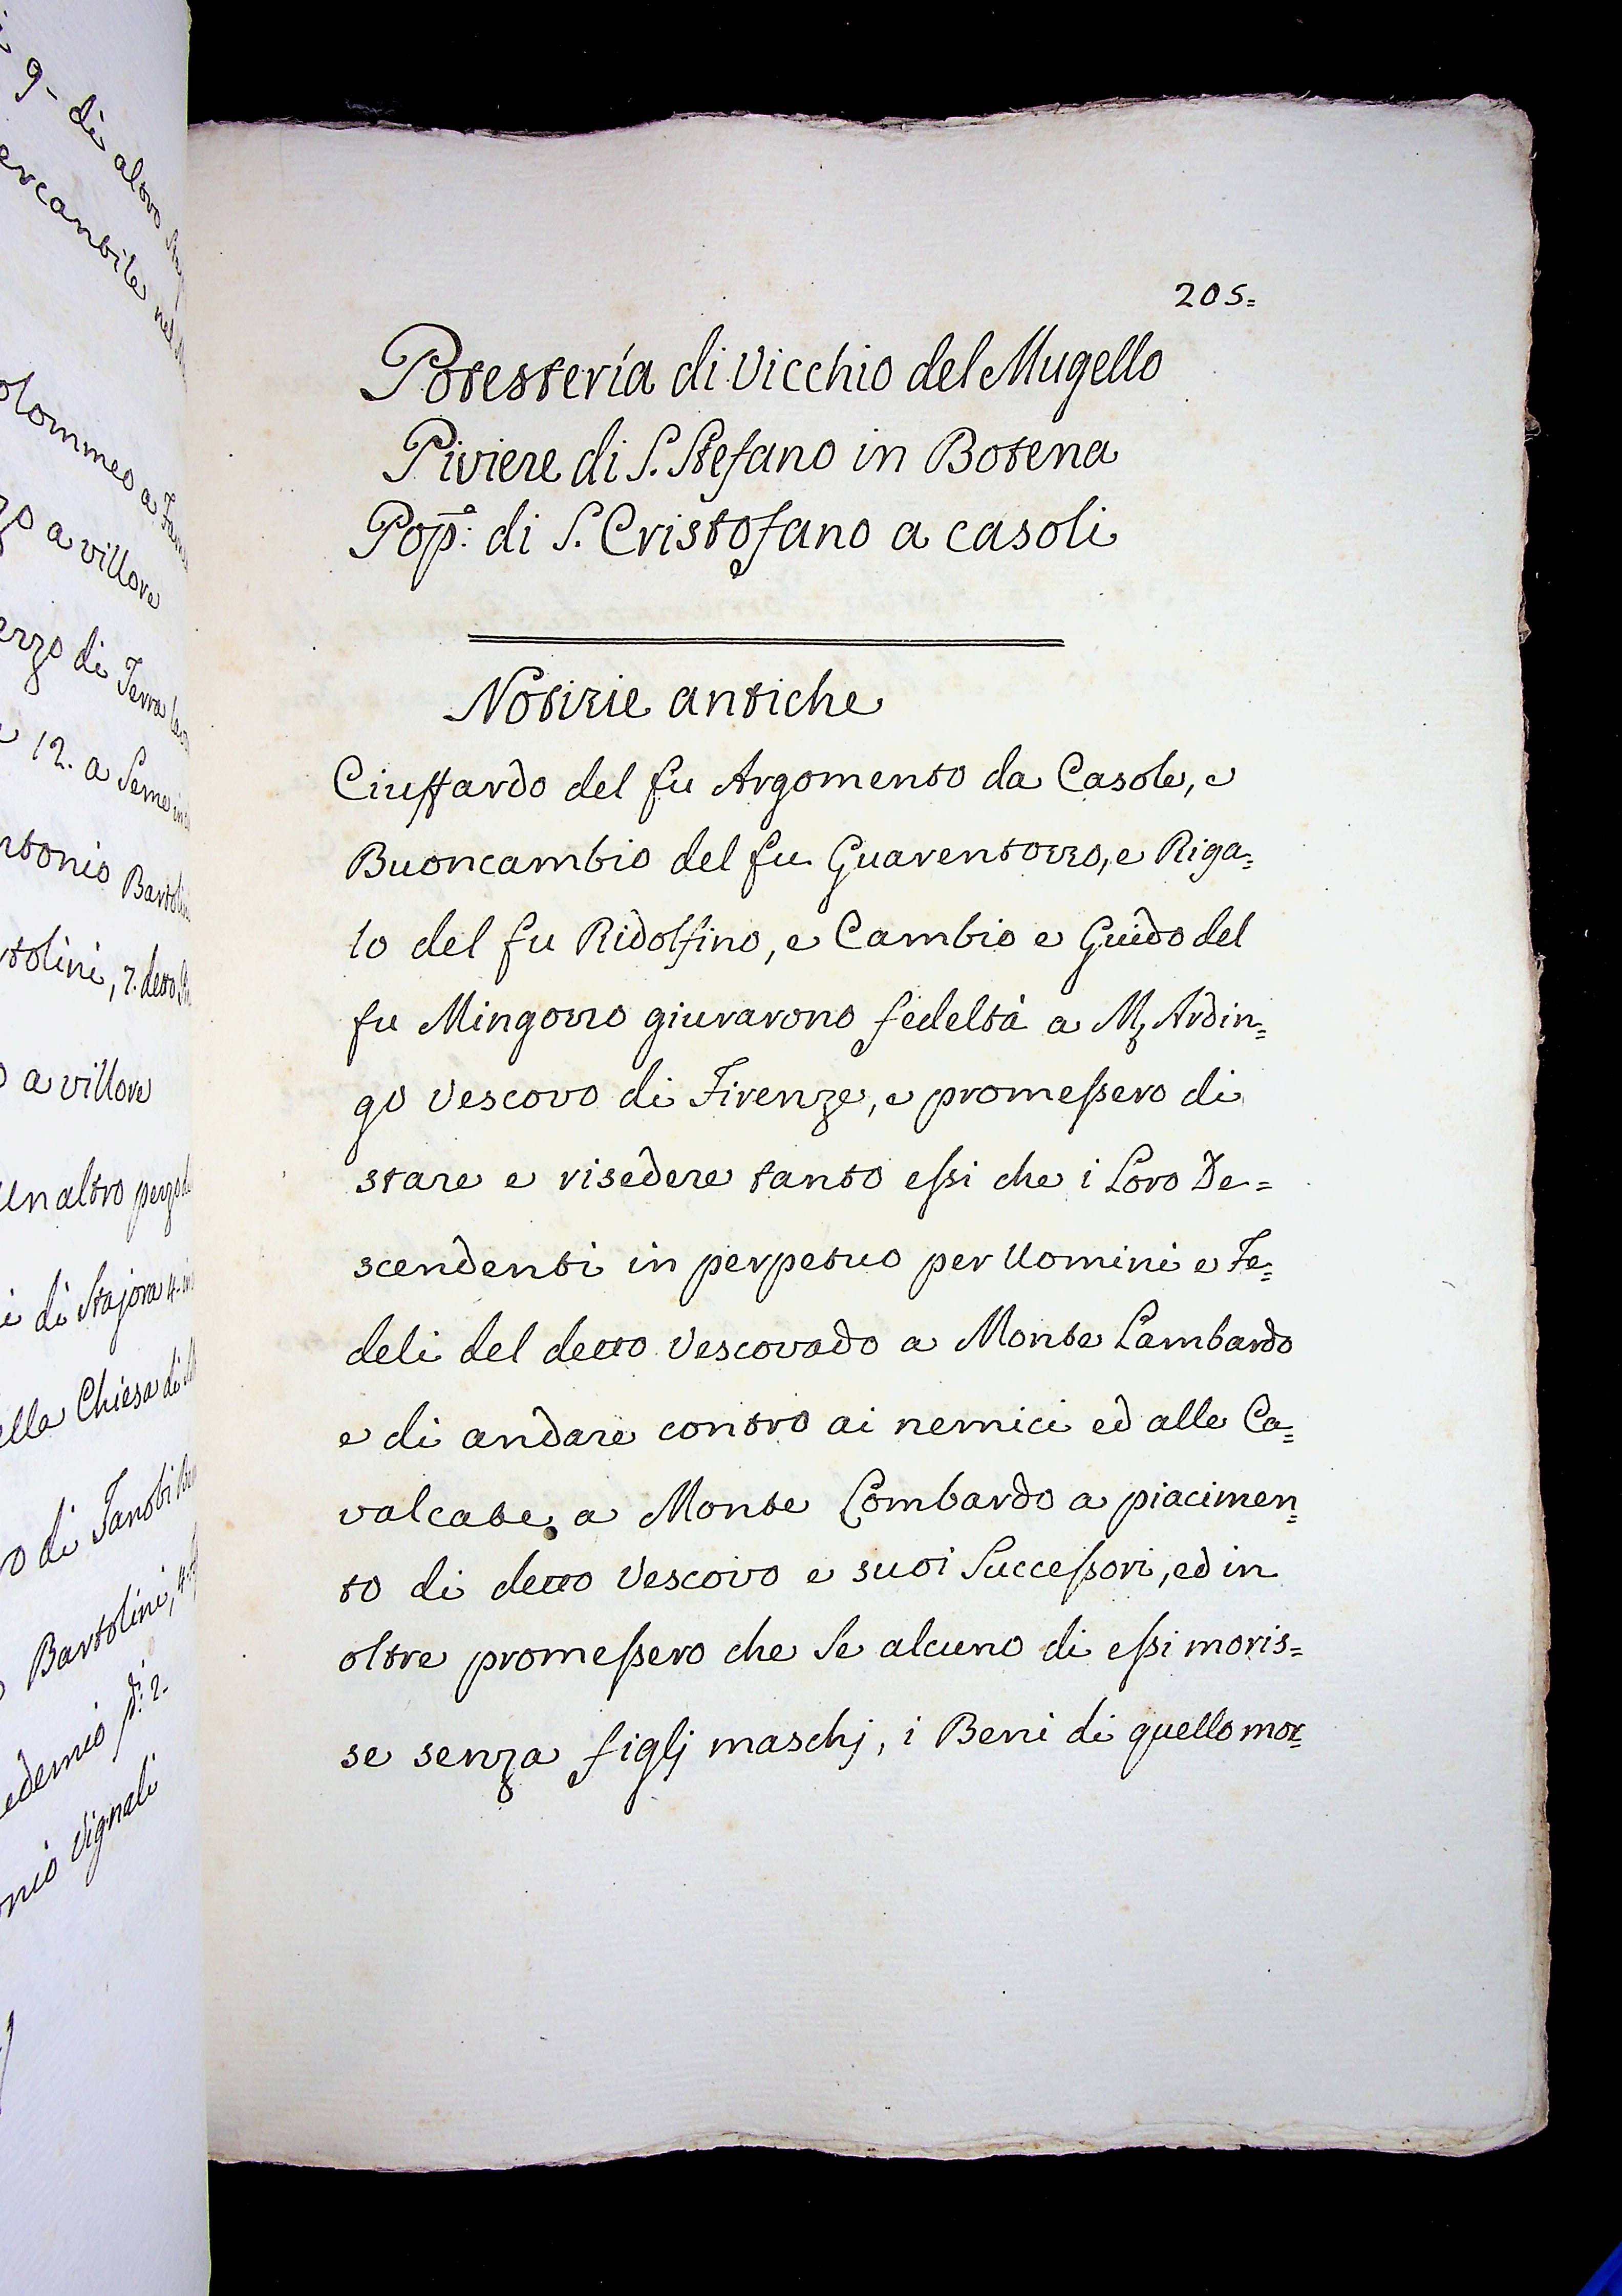 205=
Potesteria di Vicchio del Mugello
Piviere di S. Stefano in Botena
Pop.º di S. Cristofano a casoli
Notizie antiche
Ciuffardo del fu Argomento da Casole, e
Buoncambio del fu Guarentozzo, e Riga=
lo del fu Ridolfino, e Cambio e Guido del
fu Mingozzo giurarono fedeltà a M. Ardin=
go Vescovo di Firenze, e promessero di
stare e risedere tanto essi che i Loro De=
scendenti in perpetuo per Uomini e Fe=
deli del detto Vescovado a Monte Lambardo
e di andare contro ai nemici ed alle Ca=
valcate, a Monte Lombardo a piacimen=
to di detto Vescovo e suoi Successori, ed in
oltre promessero che Se alcuno di essi moris=
se senza figlj maschj, i Beni di quello mor=
9- di altro
olommeo a
zo a villore
erzo di Terra
12. a Seme in
ntonio Bartolin
rtolini, 7. detto
o a villore
un altro pezzo d
i di Stajora 4. in
ella Chiesa di
o di Zanobi
Bartolini, 4.
edemio p.i 2-
onio Vignali